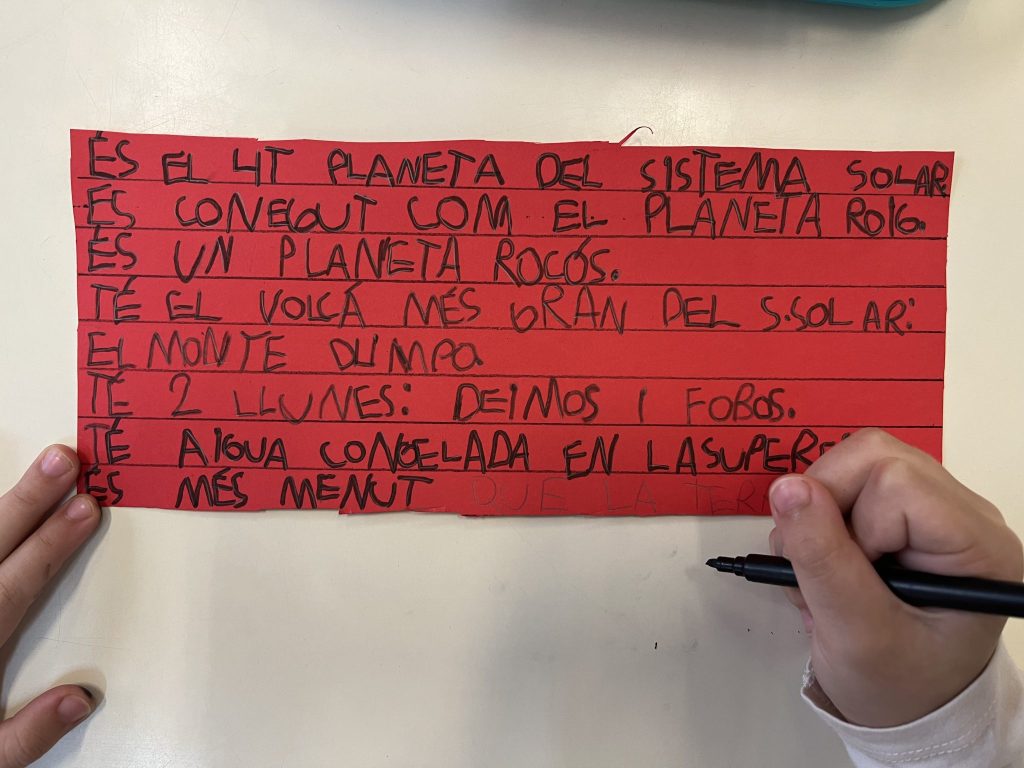 ÉS EL 4T PLANETA DEL SISTEMA SOLAR.
ÉS CONEGUT COM EL PLANETA ROIG.
ÉS UN PLANETA ROCÓS.
TÉ EL VOLCÁ MÉS GRAN DEL S.SOLAR:
EL MONTE OLIMPO.
TÉ 2 LLUNES: DEIMOS I FOBOS.
TÉ AIGUA CONGELADA EN LA
ÉS MÉS MENUT QUE LA